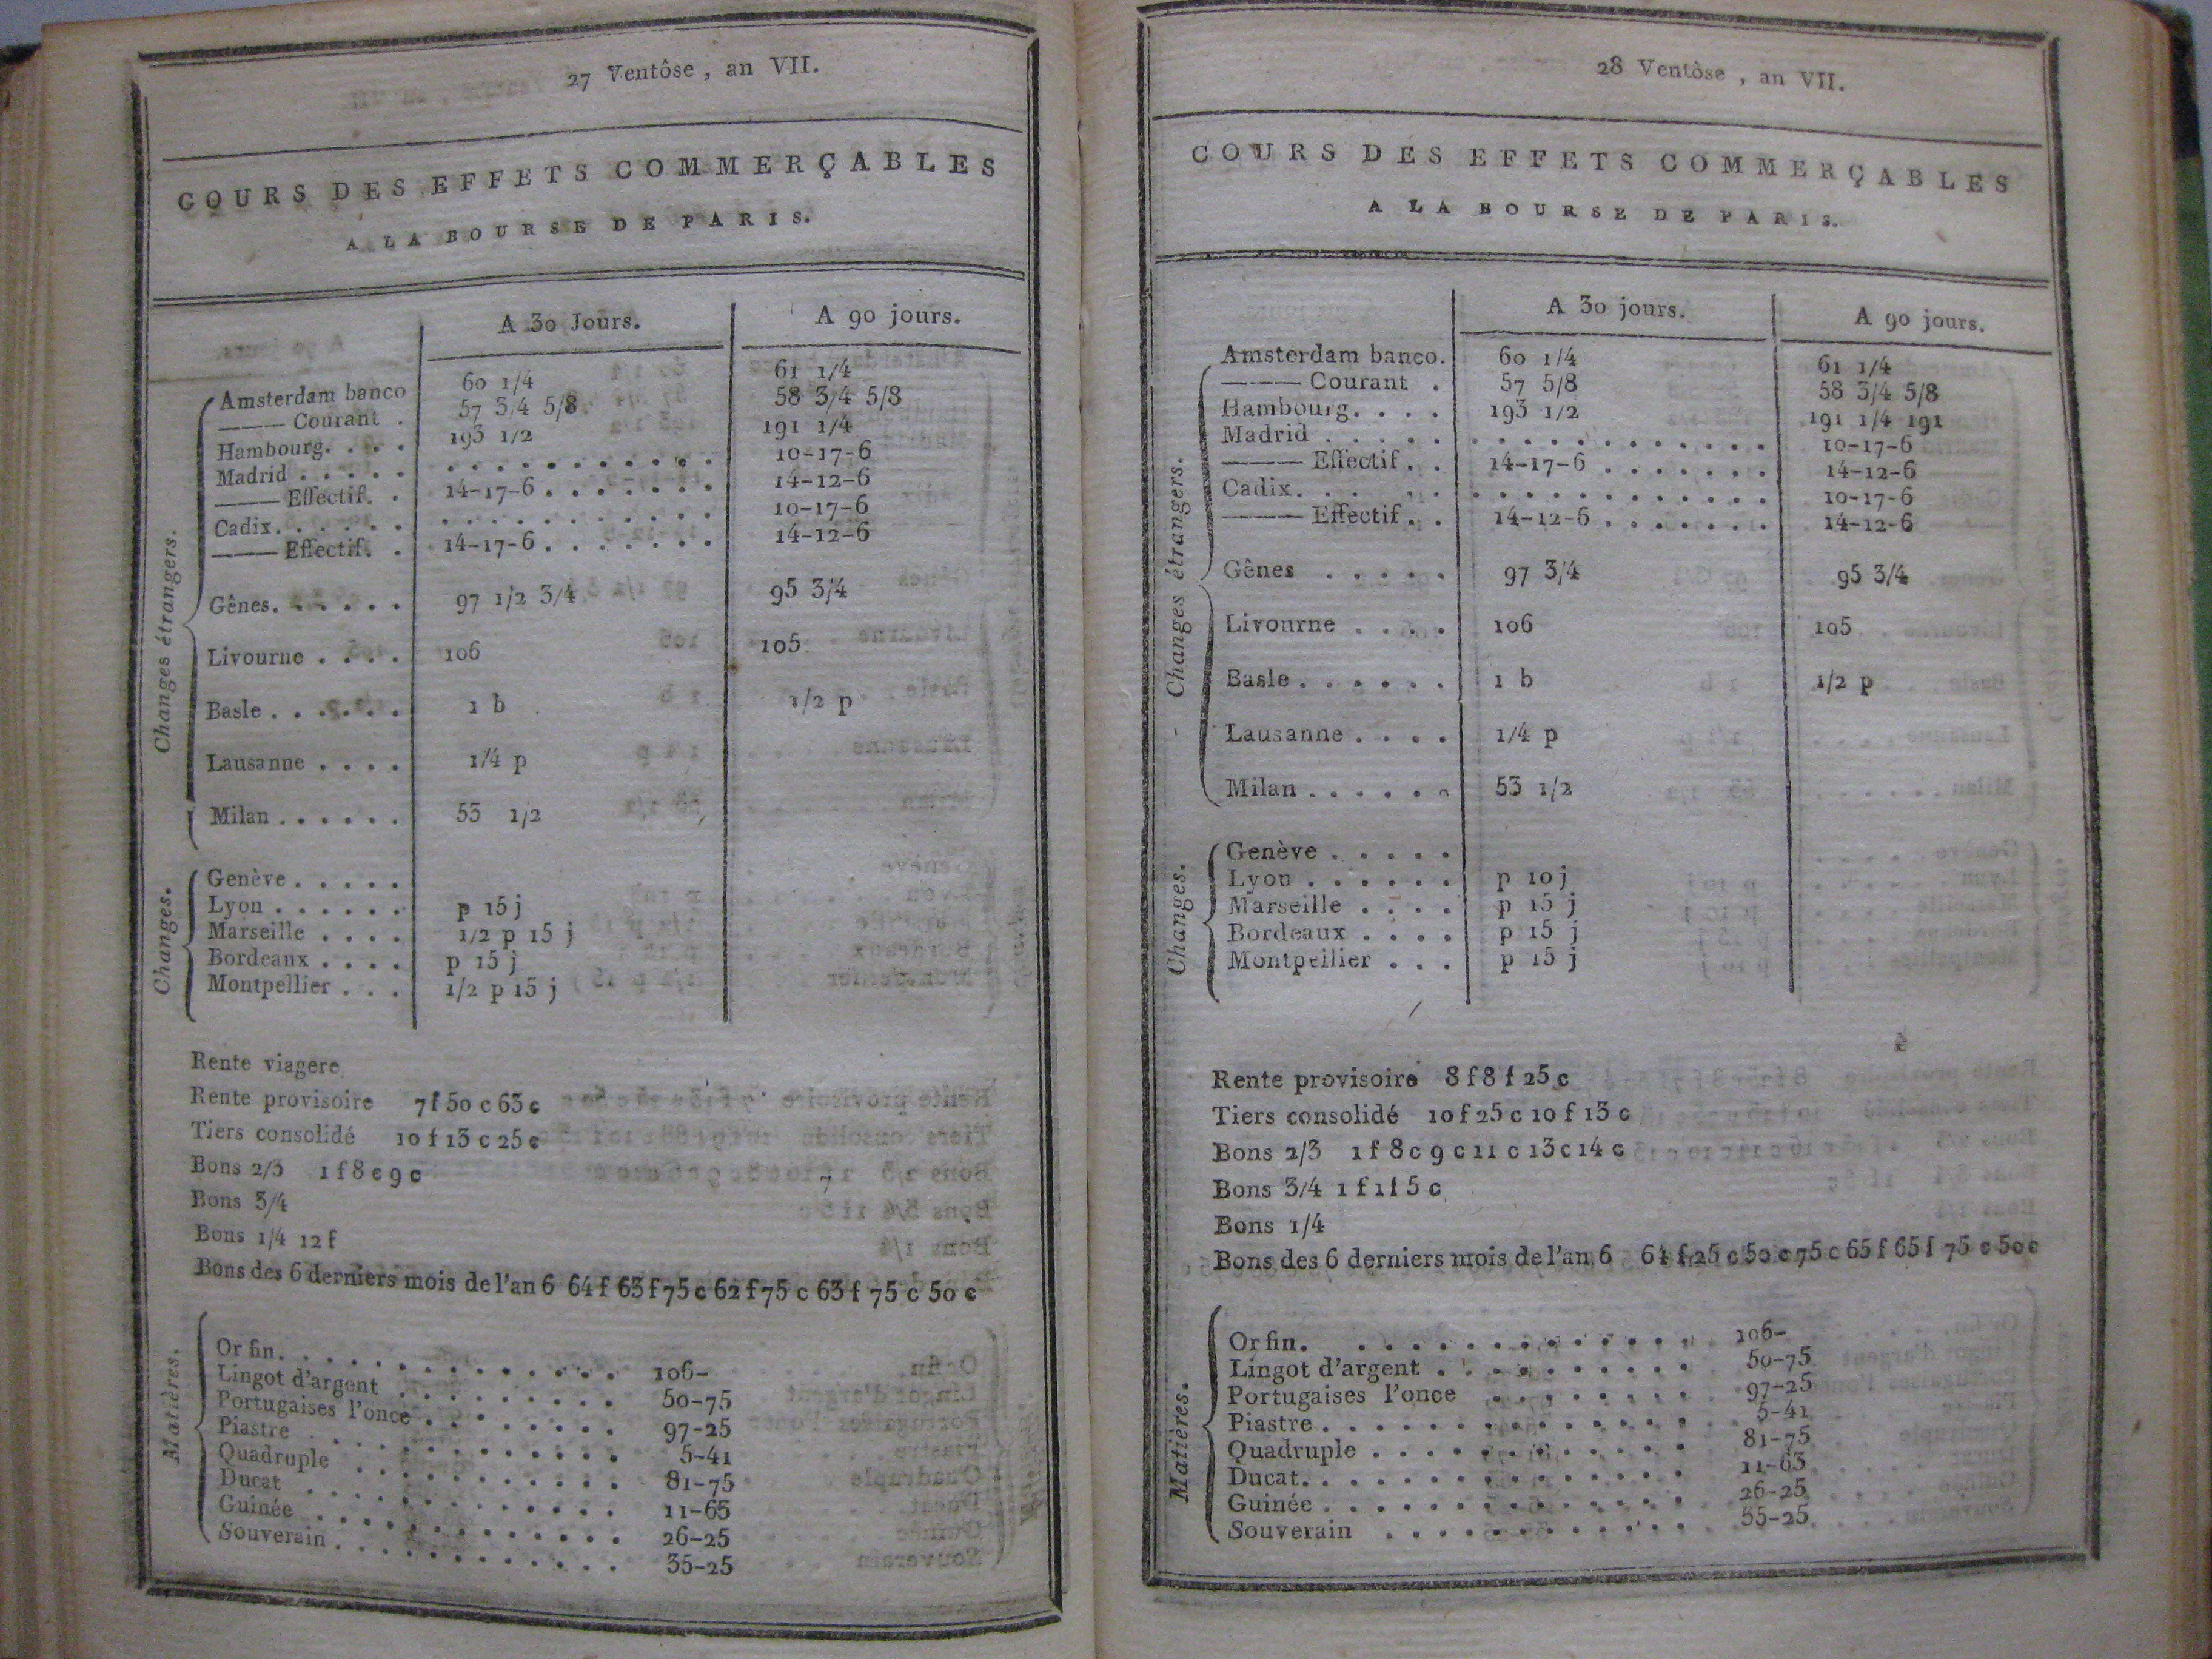 27 Ventôse , an VII.
COURS DES EFFETS COMMERÇABLES
A LA BOURSE DE PARIS.
A 30 Jours. A 90 jours.
Changes étrangers.
Amsterdam banco 60 1/4 61 1/4
——— Courant . 57 3/4 5/8 58 3/4 5/8
Hambourg. . . . 193 1/2 191 1/4
Madrid . . . . . . . . . . . . . . . . 10-17-6
——— Effectif. . 14-17-6 . . . . . . . 14-12-6
Cadix. . . . . . . . . . . . . . . . . 10-17-6
——— Effectif. . 14-17-6 . . . . . . . 14-12-6
Gênes. . . . . . 97 1/2 3/4 95 3/4
Livourne . . . . 106 105
Basle . . . . . . 1 b 1/2 p
Lausanne . . . . 1/4 p
Milan . . . . . . 53 1/2
Changes.
Genève . . . . .
Lyon . . . . . . p 15 j
Marseille . . . . 1/2 p 15 j
Bordeaux . . . . p 15 j
Montpellier . . . 1/2 p 15 j
Rente viagere
Rente provisoire 7 f 50 c 63 c
Tiers consolidé 10 f 13 c 25 c
Bons 2/3 1 f 8 c 9 c
Bons 3/4
Bons 1/4 12 f
Bons des 6 derniers mois de l'an 6 64 f 63 f 75 c 62 f 75 c 63 f 75 c 50 c
Matières.
Or fin. . . . . . . . . . . . . . 106-
Lingot d'argent . . . . . . . . . 50-75
Portugaises l'once . . . . . . . . 97-25
Piastre . . . . . . . . . . . . 5-41
Quadruple . . . . . . . . . . . 81-75
Ducat . . . . . . . . . . . . 11-63
Guinée . . . . . . . . . . . . 26-25
Souverain . . . . . . . . . . . . 35-25
28 Ventôse , an VII.
COURS DES EFFETS COMMERÇABLES
A LA BOURSE DE PARIS.
A 30 jours. A 90 jours.
Changes étrangers.
Amsterdam banco. 60 1/4 61 1/4
——— Courant . 57 5/8 58 3/4 5/8
Hambourg. . . . 193 1/2 191 1/4 191
Madrid . . . . . . . . . . . . . . . . . 10-17-6
——— Effectif . . 14-17-6 . . . . . . . 14-12-6
Cadix. . . . . . . . . . . . . . . . . . 10-17-6
——— Effectif . . 14-12-6 . . . . . . . 14-12-6
Gênes . . . . . 97 3/4 95 3/4
Livourne . . . . 106 105
Basle . . . . . . 1 b 1/2 p
Lausanne . . . . 1/4 p
Milan . . . . . . 53 1/2
Changes.
Genève . . . . .
Lyon . . . . . . p 10 j
Marseille . . . . p 15 j
Bordeaux . . . . p 15 j
Montpellier . . . p 15 j
Rente provisoire 8 f 8 f 25 c
Tiers consolidé 10 f 25 c 10 f 13 c
Bons 2/3 1 f 8 c 9 c 11 c 13 c 14 c
Bons 3/4 1 f 1 f 5 c
Bons 1/4
Bons des 6 derniers mois de l'an 6 64 f 25 c 50 c 75 c 65 f 65 f 75 c 50 c
Matières.
Or fin. . . . . . . . . . . . . . 106-
Lingot d'argent . . . . . . . . . . 50-75
Portugaises l'once . . . . . . . . 97-25
Piastre . . . . . . . . . . . . . . 5-41
Quadruple . . . . . . . . . . . . 81-75
Ducat. . . . . . . . . . . . . . . 11-63
Guinée . . . . . . . . . . . . . . 26-25
Souverain . . . . . . . . . . . . 35-25